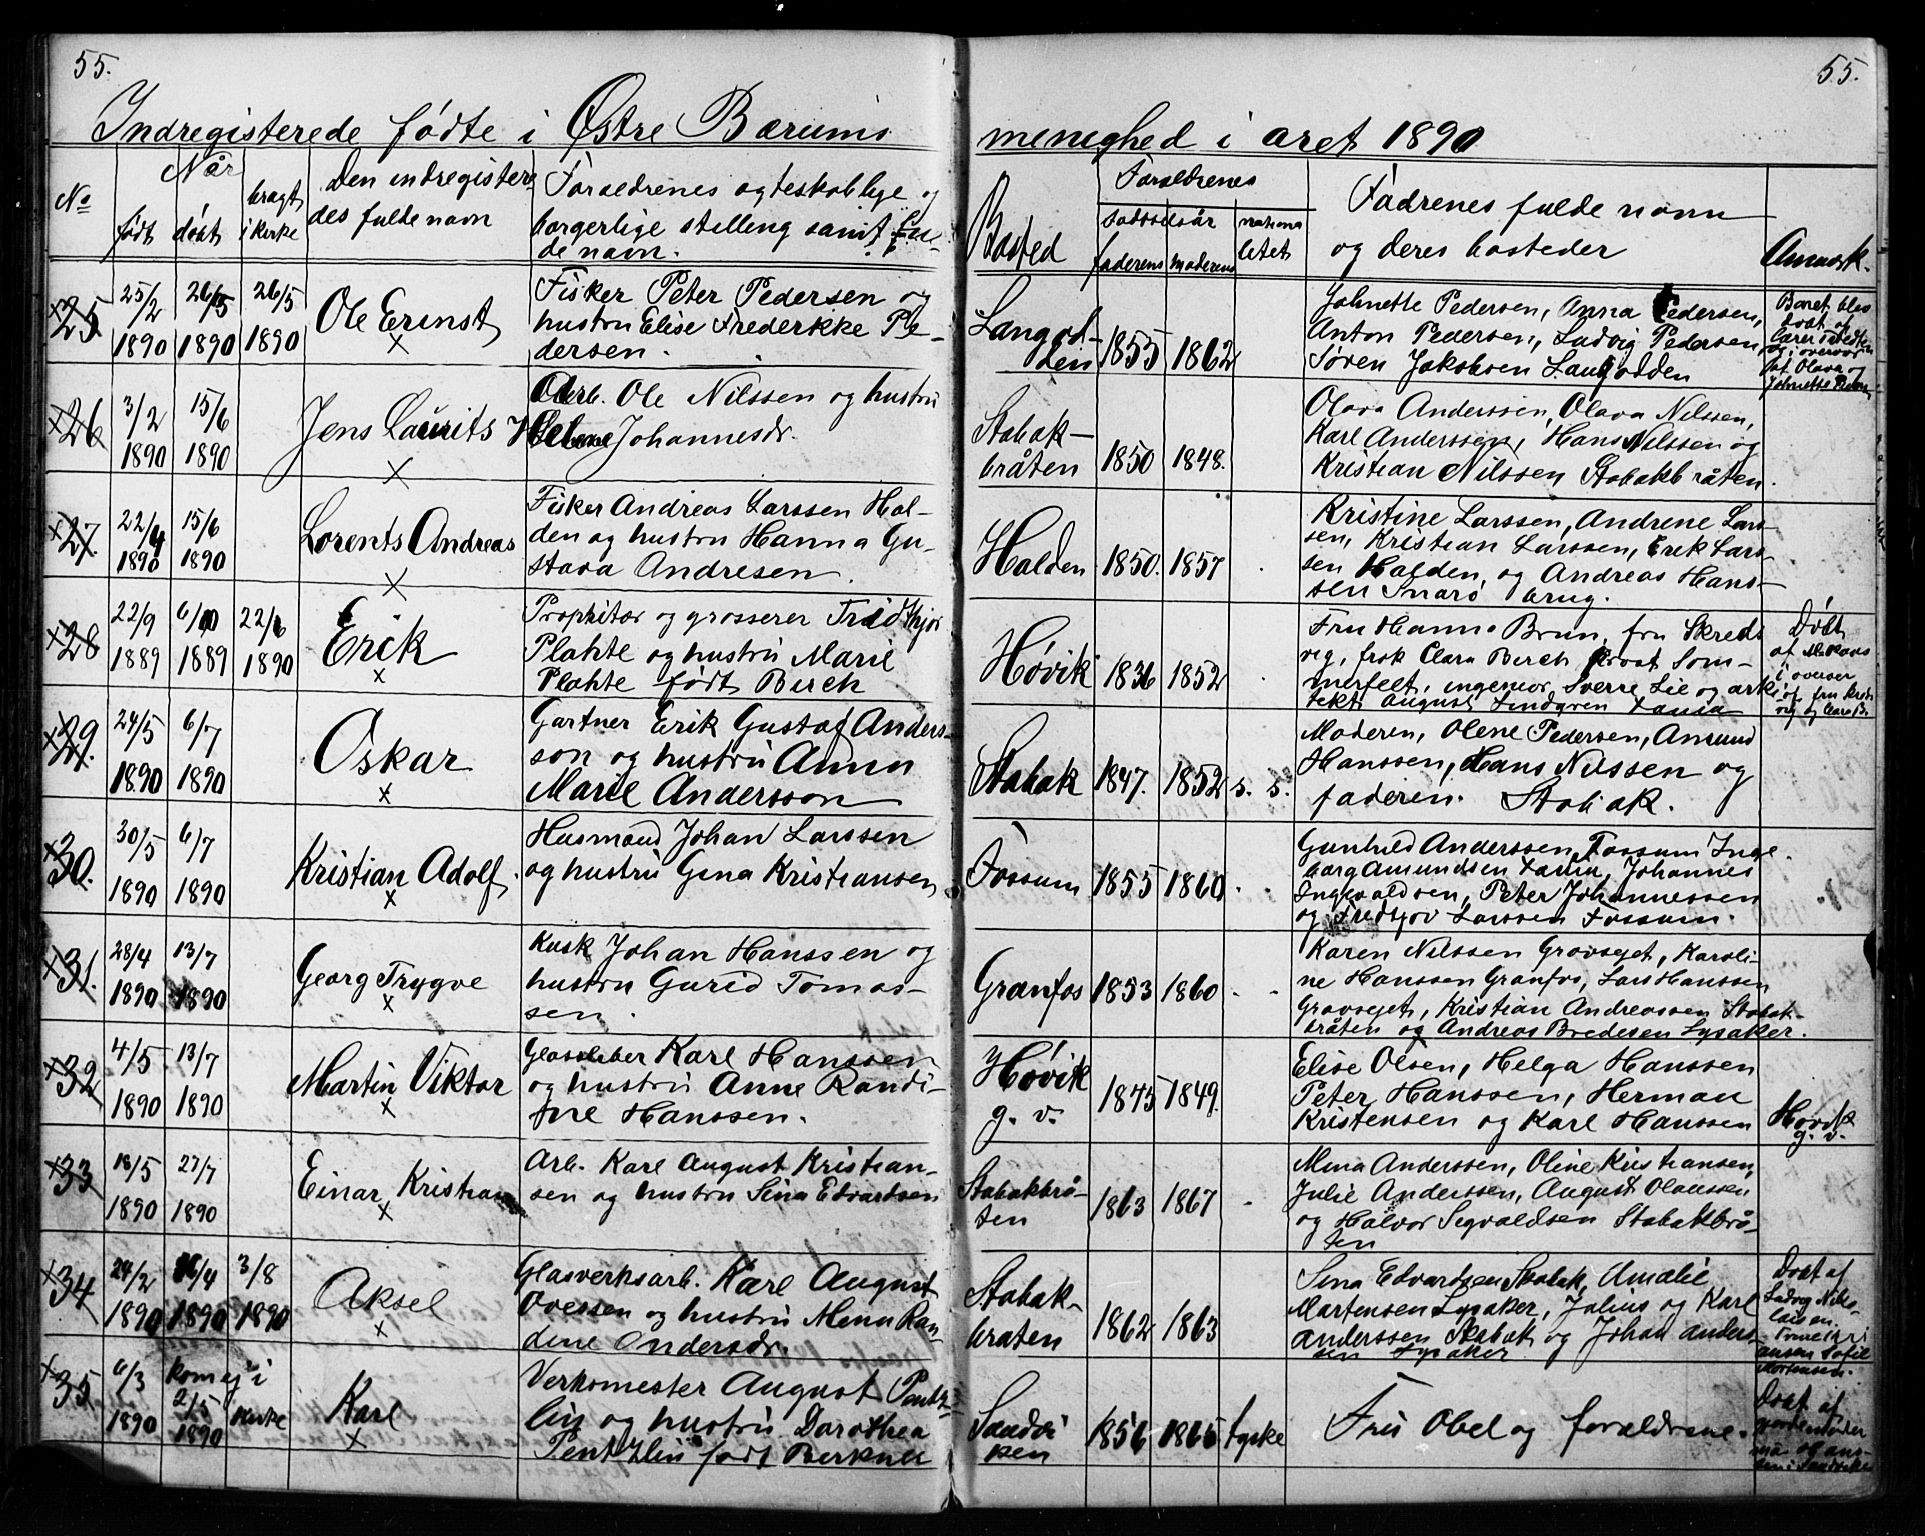 55.
55.
Indregisterede fødte i Østre Bærums
menighed i året 1890
No
Når
født
døbt
bragt
i kirke
Den indregistere
des fulde navn
Foraeldrenes ægteskablige og
borgerlige stilling samt
de navn.
Bosted
Foraeldrenes
fødselsår
faderens
moderens
nationa
litet
Fadrenes fulde navn
og deres bosteder
Anmærk.
25
25/2
26/5
26/5
1890
1890
1890
Ole Ernst
Fisker Peter Pedersen og
hustru Elise Frederikke Pe-
dersen.
Langod-
den
1855
1862
Johnette Pedersen, Anna Pedersen,
Anton Pedersen, Ludvig Pedersen,
Søren Jakobsen Langodden
Barnet blev
døbt af
Olava og
Johnette
26
3/2
15/6
1890
1890
Jens Laurits
Arb. Ole Nilssen og hustru
Helene Johannesdr.
Stabak-
bråten
1850
1848.
Olava Anderssen, Olava Nilssen,
Karl Anderssen, Hans Nilssen og
Kristian Nilssen Stabakbråten
27.
22/4
15/6
1890
1890
Lorents Andreas
Fisker Andreas Larssen Hal-
den og hustru Hanna Gu-
stava Andresen.
Halden
1850.
1857
Kristine Larssen, Andrene Lars-
sen, Kristian Larssen, Erik Lars-
sen Halden, og Andreas Hans-
sen Snarø brug.
28
22/9
6/10
22/6
1889
1889
1890
Erik
Propritær og grosserer Tridthjov
Plahte og hustru Marie
Plahte født Birch
Høvik
1836
1852
Fru Hanna Brun, fru Skreds
vig, frøk Clara Birch Provst Som-
merfelt, ingeniør Sverre Lie og arki
tekt August Lindgren
Døbt
i overvær
af fru
vig og Clara B.
29.
24/5
6/7
1890
1890
Oskar
Gartner Erik Gustaf Anders-
son og hustru Anna
Marie Andersson
Stabak
1847.
1852
s. s.
Moderen, Oline Pedersen, Amund
Hanssen, Hans Nilssen og
faderen. Stabak.
30.
30/5
6/7
1890
1890
Kristian Adolf.
Husmand Johan Larssen
og hustru Gina Kristiansen
Fossum
1855
1860
Gunhild Anderssen, Fossum Inge
borg Amundsen, Johannes
Ingevaldsen, Peter Johannessen
og Fredtjov Larssen Fossum.
31.
28/4
13/7
1890
1890
Georg Trygve
Kusk Johan Hanssen og
hustru Gurid Tomas-
sen.
Granfos
1853
1860
Karen Nilssen Gravseget, Karoli-
ne Hanssen Granfos, Lars Hanssen
Gravseget, Kristian Andreassen Stabak-
bråten og Andreas Bredesen Lysaker.
32
4/5
13/7
1890
1890
Martin Viktor
Glassliber Karl Hanssen
og hustru Anne Randi-
ne Hanssen.
Høvik
g. v.
1845
1849.
Elise Olsen, Helga Hanssen
Peter Hanssen, Herman
Kristensen og Karl Hanssen
Høvik
g. v.
33
18/5
27/7
1890
1890
Einar Kristian
Arb. Karl August Kristian-
sen og hustru Sina Edvardsen
Stabakbrå-
ten
1863
1867
Mina Anderssen, Oline Kristiansen,
Julie Anderssen, August Olaussen
og Halvor Segvaldsen Stabakbrå-
ten
34
24/2
6/4
3/8
1890
1890
1890
Aksel
Glasverksarb. Karl August
Ovessen og hustru Mina Ran-
dine Andersdr.
Stabak-
bråten
1862
1863
Sina Edvardsen Stabak, Amalie
Martensen Lysaker, Julius og Karl
Anderssen Stabak og Johan Anders-
sen Lysaker
Døbt af
Ludvig Niko-
laisen.
Sofie
Mortensen.
35
6/3
kom ej i
2/5
kirke
1890
1890
Karl
Verkmester August Pentz-
lin og hustru Dorothea
Pentzlin født Berkner
Sandvi
ken
1856
1865
tyske
Fru Obel og foraeldrene.
Døbt af
jordemoder